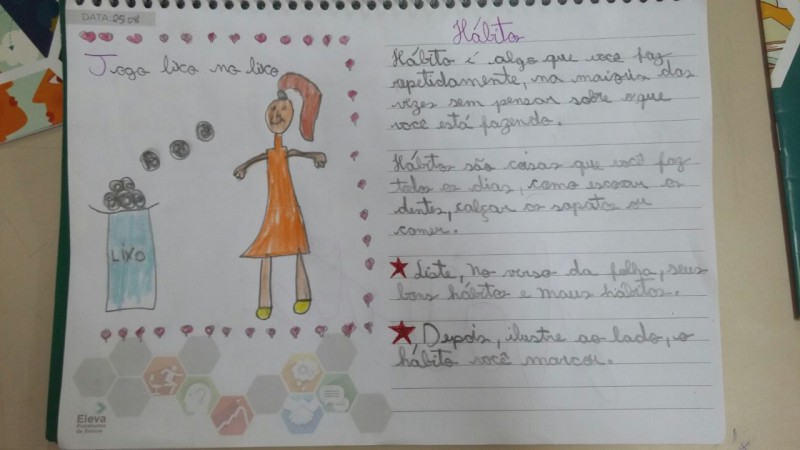 DATA: 05.04
Jogo lixo no lixo
LIXO
Eleva
Plataforma
de Ensino
Hábito
Hábito é algo que você faz
repetidamente, na maioria das
vezes sem pensar sobre o que
você está fazendo.
Hábitos são coisas que você faz
todos os dias, como escovar os
dentes, calçar os sapatos ou
comer.
★ Liste, no verso da folha, seus
bons hábitos e maus hábitos.
★ Depois, ilustre ao lado, o
hábito você marcar.